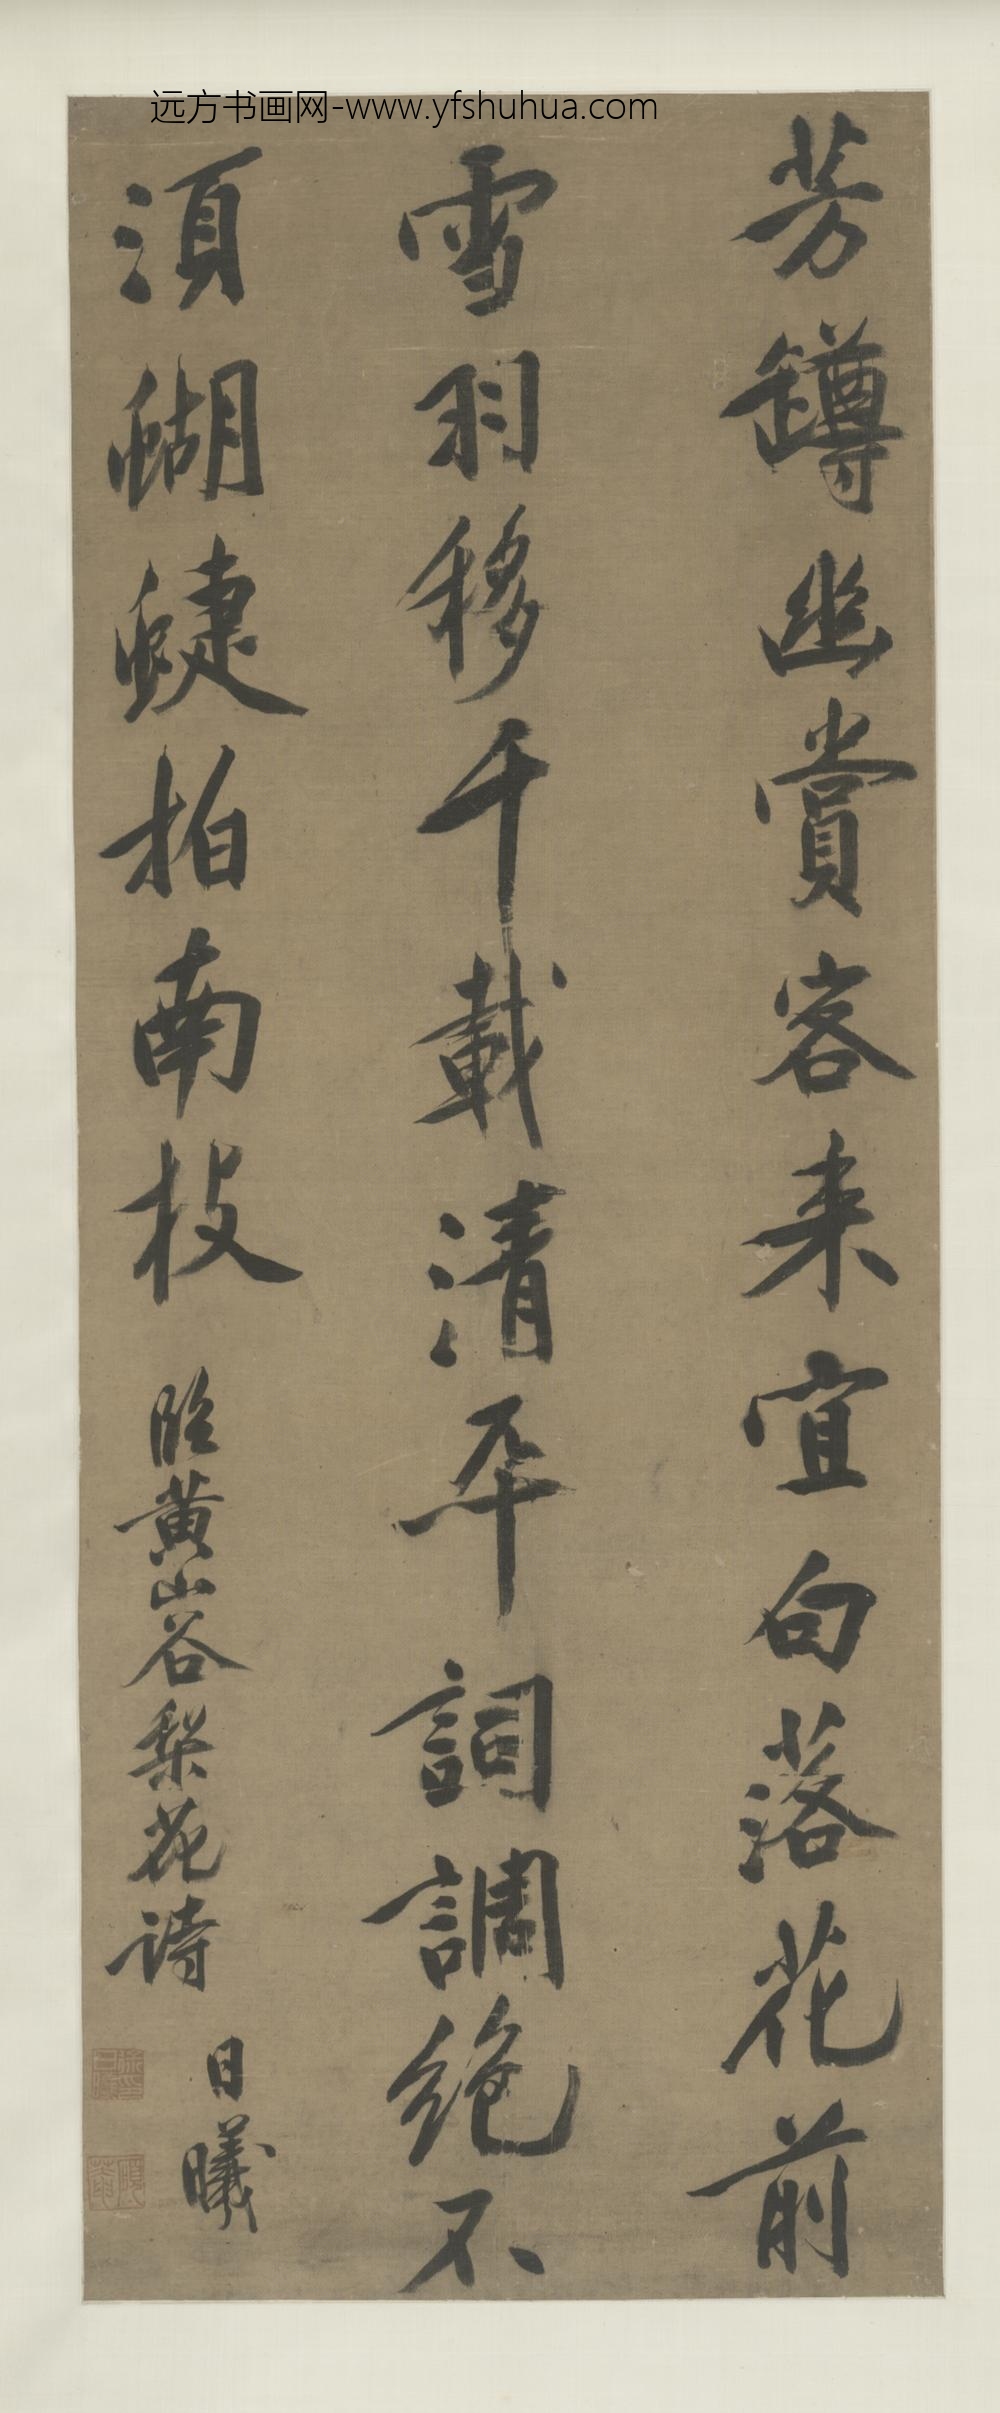 远方书画网-www.yfshuhua.com
芳罇幽賞客来宜句落花前
雪羽移千載清平詞調絕不
須蝴蜨拍南枝
臨黄山谷梨花詩
日曦